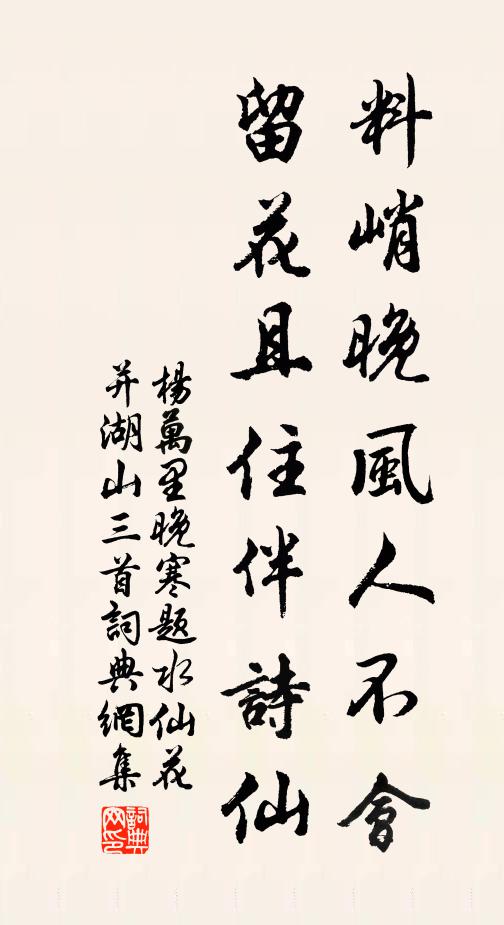 料峭晚風人不會
留花且住伴詩仙
楊萬里晚寒題水仙花
并湖山三首詞典網集
詞典
网印